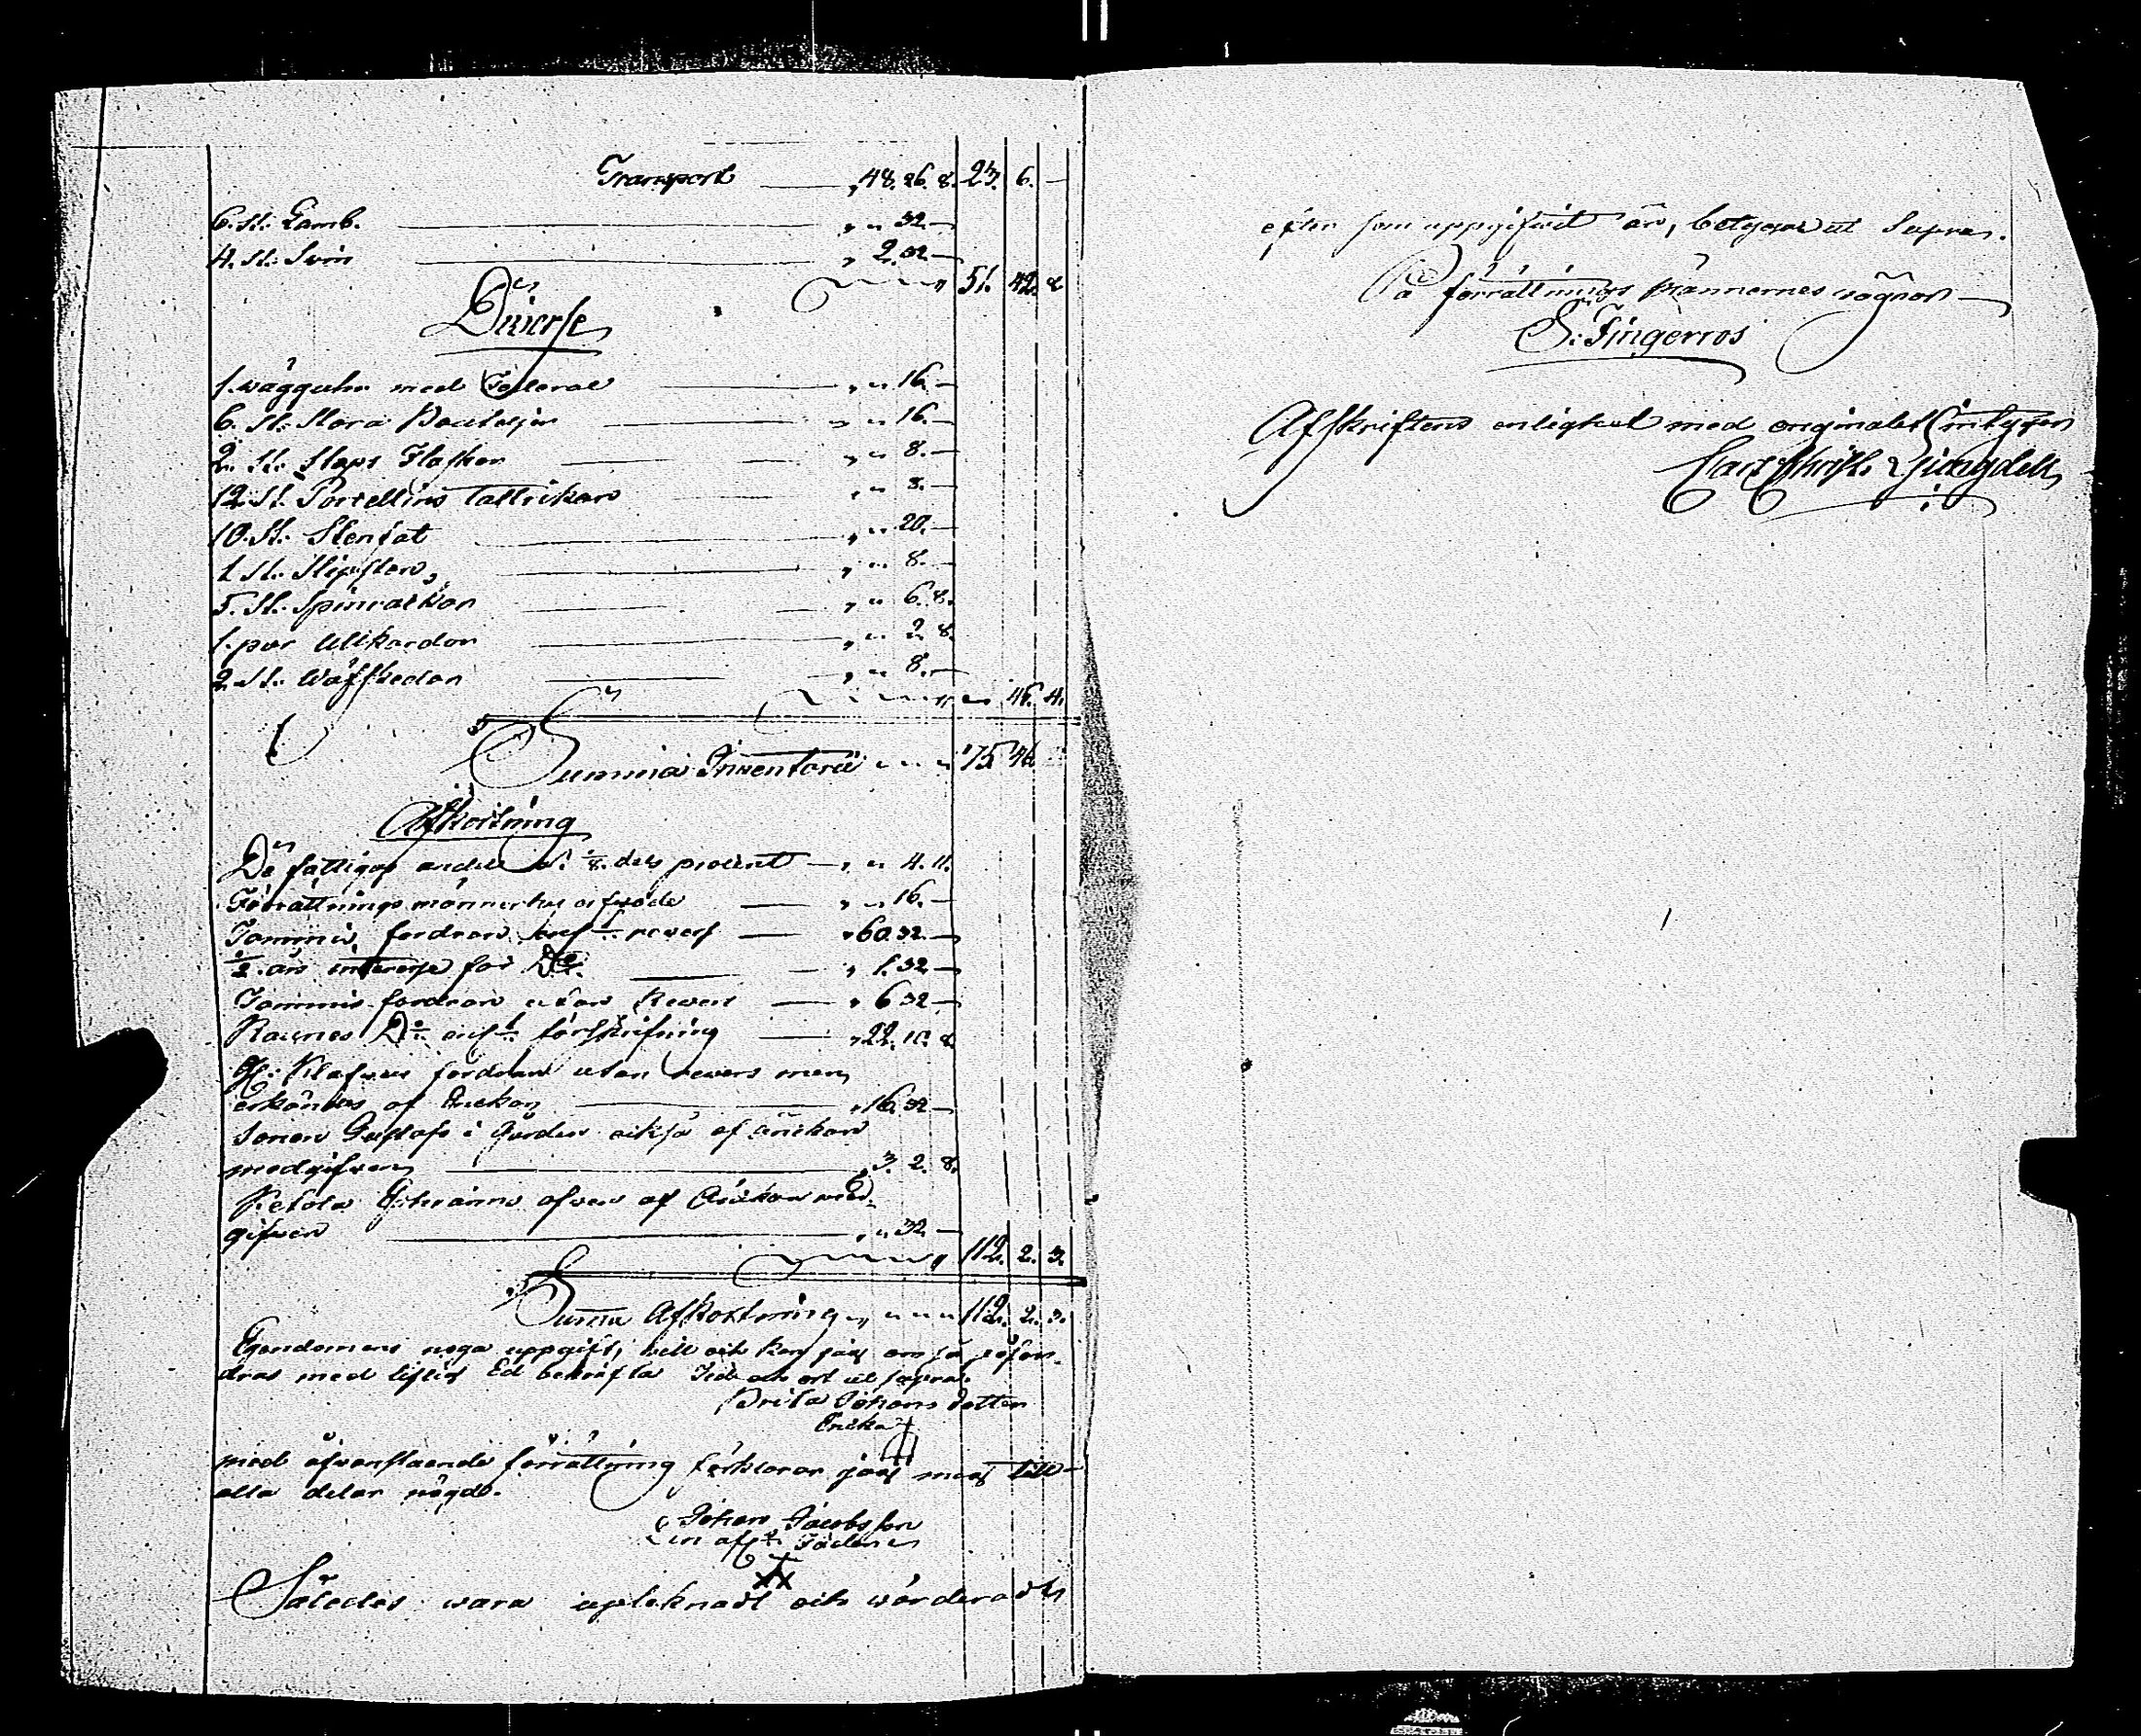 Transport — „ 48. 26. 8. 23. 6. —
6. st: Lamb. — „ „ 32 —
4. st: Svin — „ 2. 32 —
„ 51. 42. 8
Diverse
1. wägguhr med Foderal — „ „ 16. —
6. St: Stora Bouteljer — „ „ 16. —
2. St: Slaps Flaskor — „ „ 8. —
12. St. Porcellins tallrikar — „ „ 8. —
10. St. Stenfat — „ „ 20. —
1 St. Slipsten — „ „ 8. —
5. St. Spinrackor — „ „ 6. 8.
1. par Ullkardor — „ „ 2. 8.
2 St. Wäfskedar — „ „ 8. —
„ „ 46. 4.
Summa Inventarii „ „ „ 75 46
Afkortning
De fattigas andel 1/8 dels procent — „ „ 4. 11.
Förrättnings männernas arfvode — „ „ 16. —
Tommis fordran revers — „ 60. 32 —
1/2 års interesse för Do — „ 1. 32 —
Tommis fordran utan Revers — „ 6 32 —
Do förskrifning — „ 22. 10. 8
fordran utan revers men
erkändes af Enckan — „ 16. 32 —
Sonen Gustafs i gården också af änckan
medgifven — „ 3. 2. 8.
Ketola äfven af Änckan med-
gifven — „ „ 32 —
„ 112. 2. 3.
Summa Afkortning „ „ „ 112. 2. 3.
Egendomens noga uppgift, vill och kan jag om så fodras
med liflig Ed bekräfta Tid och ort ut supra.
Brita Johans dotter
Encka
Med ofvanstående förrättning förklarar jag mig till
alla delar nögd.
Johan Jacobsson
Således vara upteknadt och värderadt
efter som uppgifvit är, betygar ut Supra.
På förrättnings männernes vägnar
S: Fingerroos
Afskriftens enlighet med originalet intygar